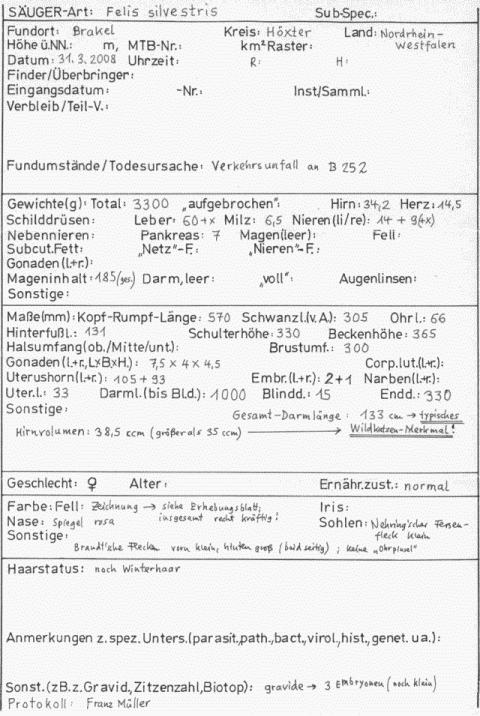 SÄUGER-Art: Felis silvestris Sub-Spec.:
Fundort: Brakel Kreis: Höxter Land: Nordrhein-
Höhe ü.NN.: m, MTB-Nr.: km²Raster: Westfalen
Datum: 31.3.2008 Uhrzeit: R: H:
Finder/Überbringer:
Eingangsdatum: -Nr.: Inst/Samml.:
Verbleib/Teil-V.:
Fundumstände/Todesursache: Verkehrsunfall an B 252
Gewichte(g): Total: 3300 „aufgebrochen": Hirn: 34,2 Herz: 14,5
Schilddrüsen: Leber: 60+x Milz: 6,5 Nieren(li/re): 14 + 9(+x)
Nebennieren: Pankreas: 7 Magen(leer): Fell:
Subcut.Fett: „Netz"-F.: „Nieren"-F.:
Gonaden(l.+r.):
Mageninhalt: 185(ges.) Darm, leer: „voll": Augenlinsen:
Sonstige:
Maße(mm): Kopf-Rumpf-Länge: 570 Schwanzl.(v.A): 305 Ohrl.: 66
Hinterfußl.: 131 Schulterhöhe: 330 Beckenhöhe: 365
Halsumfang(ob./Mitte/unt.): Brustumf.: 300
Gonaden(l.+r.,LxBxH.): 7,5 x 4 x 4,5 Corp.lut.(l.+r.):
Uterushorn(l.+r.): 105 + 93 Embr.(l.+r.): 2+1 Narben(l.+r.):
Uter.l.: 33 Darml.(bis Bld.): 1000 Blindd.: 15 Endd.: 330
Sonstige: Gesamt-Darmlänge: 133 cm → typisches
Hirnvolumen: 38,5 ccm (größer als 35 ccm) → Wildkatzen-Merkmal!
Geschlecht: ♀ Alter: Ernähr.zust.: normal
Farbe: Fell: Zeichnung → siehe Erhebungsblatt; Iris:
Nase: Spiegel rosa insgesamt recht kräftig! Sohlen: Nehring'scher Fersen-
Sonstige: fleck klein
Brandt'sche Flecken vorn klein, hinten groß (beidseitig); keine „Ohrpinsel"
Haarstatus: noch Winterhaar
Anmerkungen z. spez. Unters.(parasit.,path.,bact.,virol.,hist.,genet. u.a.):
Sonst.(z.B.z.Gravid.,Zitzenzahl,Biotop): gravide → 3 Embryonen (noch klein)
Protokoll: Franz Müller